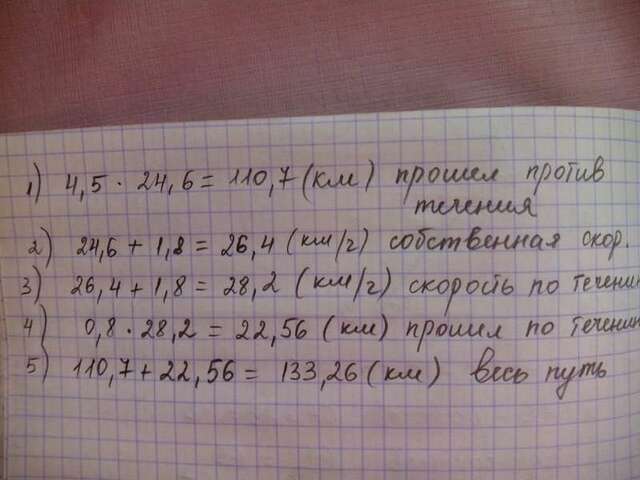 1) 4,5 · 24,6 = 110,7 (км) прошел против
течения
2) 24,6 + 1,8 = 26,4 (км/г) собственная скор.
3) 26,4 + 1,8 = 28,2 (км/г) скорость по течени
4) 0,8 · 28,2 = 22,56 (км) прошил по течени
5) 110,7 + 22,56 = 133,26 (км) весь путь